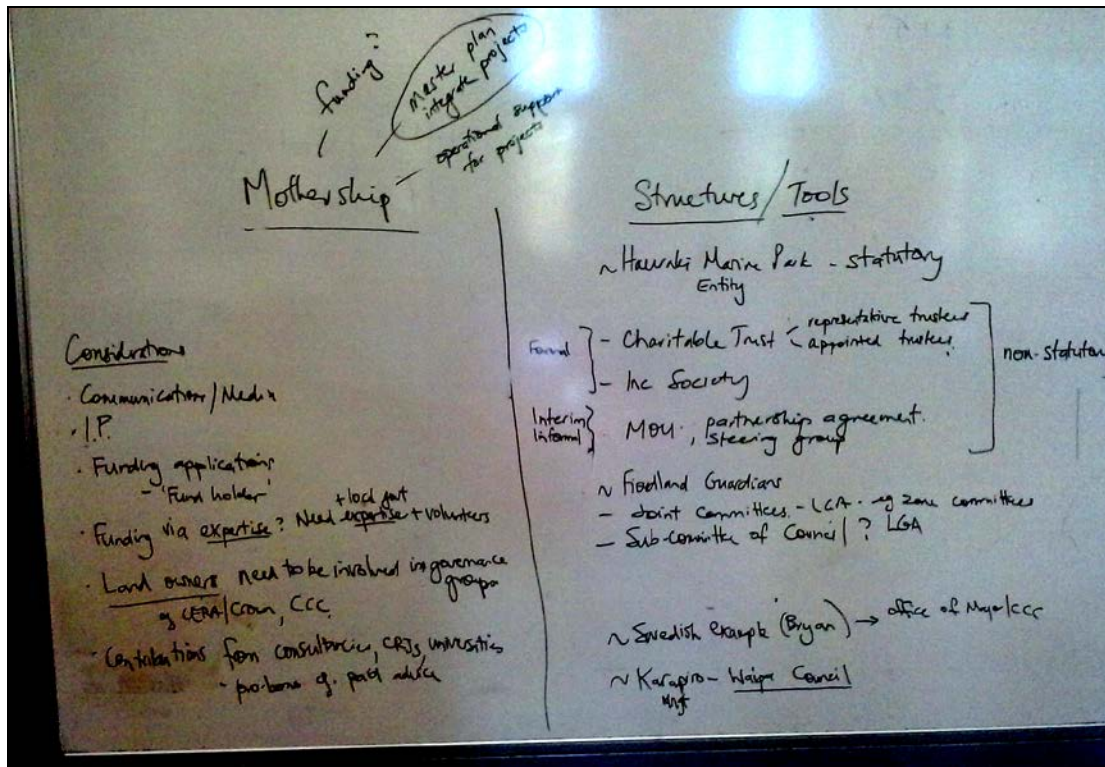 funding?
Master plan
integrate projects
operational support
for projects
Mothership
Considerations
· Communication/Media
· I.P.
· Funding applications
- 'Fund holder'
+ local govt
· Funding via expertise? Need expertise + volunteers
· Land owners need to be involved in governance
groups
eg CERA/Crown, CCC
· Contributions from consultancies, CRIs, universities
- pro-bono q. paid advice
Structures / Tools
~ Hauraki Marine Park - statutory
Entity
Formal
- Charitable Trust
representative trustees
appointed trustees
- Inc Society
non-statutory
Interim
Informal
· MOU, partnerships agreement.
steering group
~ Fiordland Guardians
- Joint Committees - LGA. eg zone committees
- Sub-committee of Council? LGA
~ Swedish example (Bryan) → office of Mayor/CCC
~ Karapiro - Waipa Council
Mngt